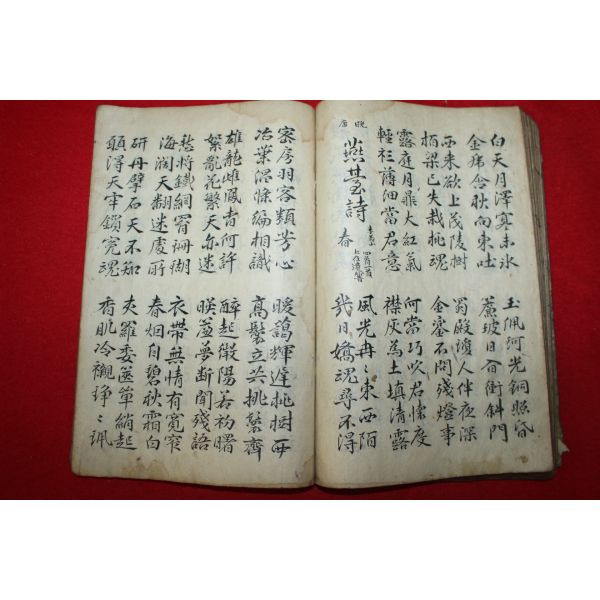 白天月澤寒未冰 玉佩呵光銅照昏
金虎含秋向東吐 簾波日日衝斜門
西來欲上茂陵樹 蜀殿瓊人伴夜深
栢梁已失栽桃魂 金鑾不問殘燈事
露庭月井大紅氣 何當巧吹君懷度
輕衫薄細當君意 襟灰為土填清露
晚唐
燕臺詩 春
風光冉〻東西陌
幾日嬌魂尋不得
密房羽客類芳心 暖藹輝遲桃樹西
冶葉倡條編相識 高鬟立共桃鬟齊
雄龍雌鳳杳何許 醉起微陽若初曙
絮亂花繁天亦迷 映簾夢斷聞殘語
愁將鐵網罥珊瑚 衣帶無情有寬窄
海濶天翻迷處所 春烟自碧秋霜白
研丹擘石天不知 夾羅委篋單綃起
願得天牢鎖冤魂 香肌冷襯琤〻珮